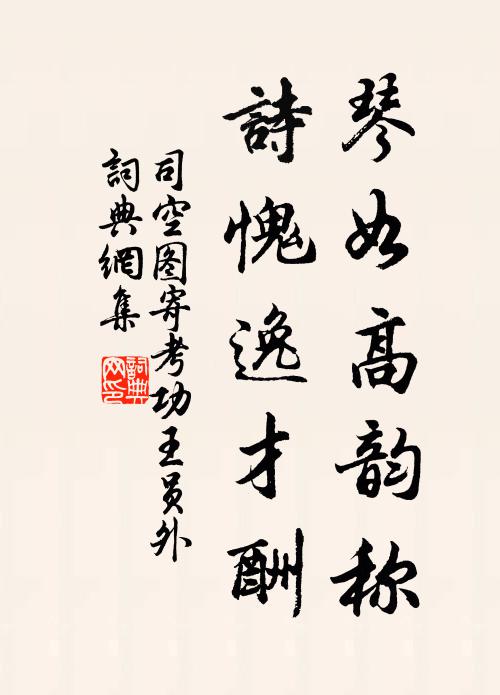 琴如高韵称
詩愧逸才酬
司空图寄考功王员外
詞典網集
詞典
网印